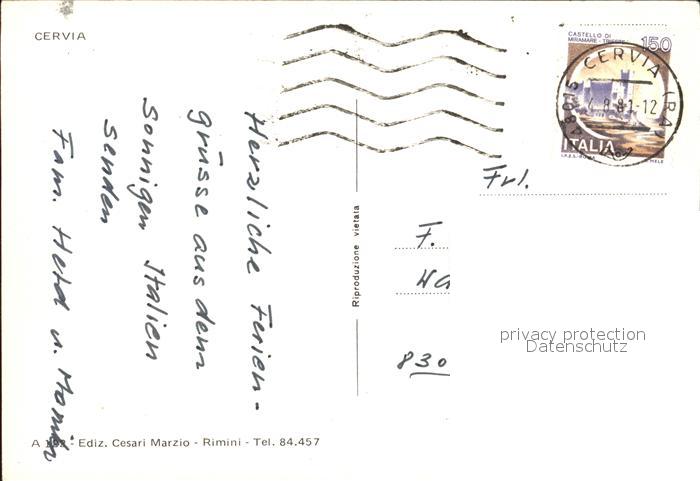 CERVIA
CASTELLO DI
MIRAMARE - TRIESTE
150
ITALIA
I.P.Z.S. - ROMA
MELE
48015 CERVIA (RA)
4.8.81-12
Herzliche Ferien-
grüsse aus dem
Sonnigen Italien
senden
Fam.
Reproduzione vietata
Frl.
F.
830
privacy protection
Datenschutz
Ediz. Cesari Marzio - Rimini - Tel. 84.457